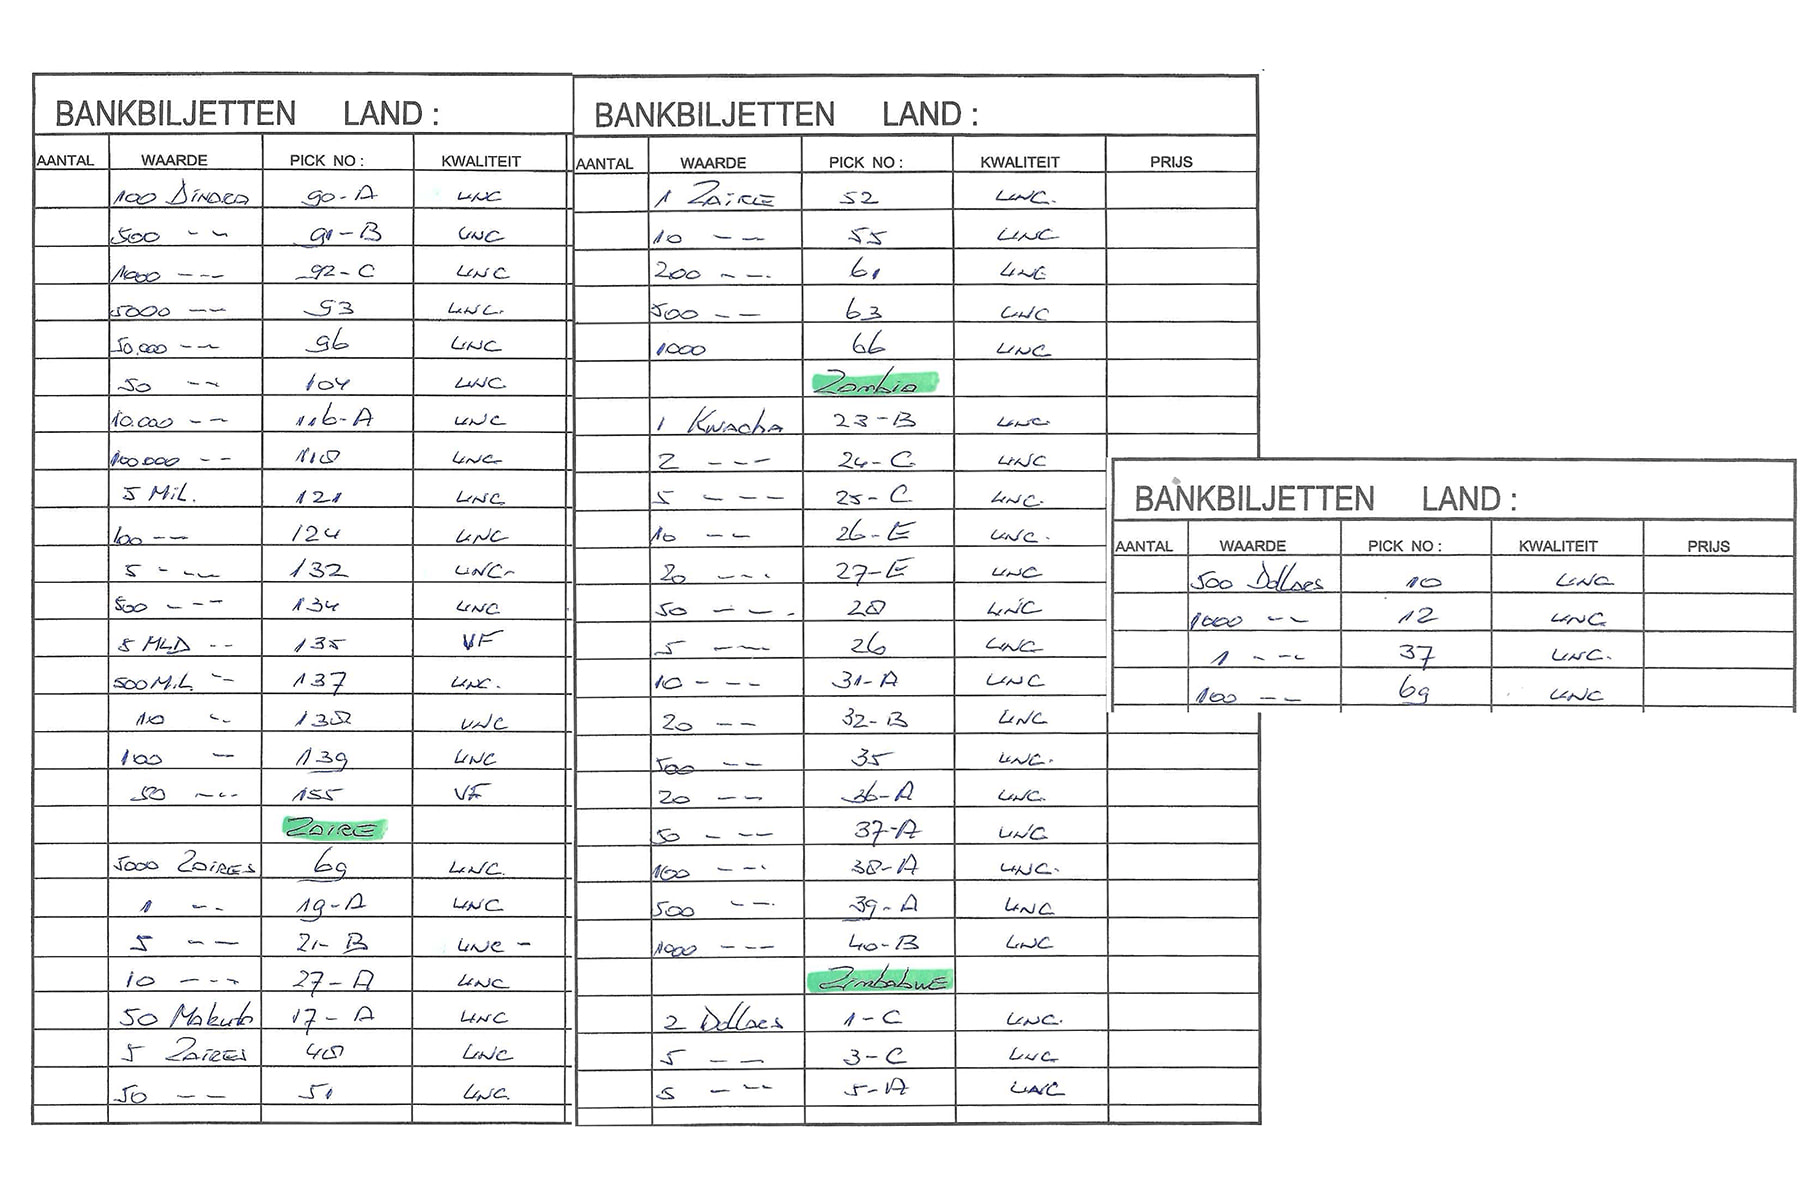 BANKBILJETTEN LAND :
AANTAL WAARDE PICK NO : KWALITEIT
100 Dinara 90-A UNC
500 -- 91-B UNC
1000 --- 92-C UNC
5000 -- 93 UNC.
50.000 -- 96 UNC
50 -- 104 UNC
10.000 -- 116-A UNC
100.000 -- 118 UNC
5 Mil. 121 UNC
100 -- 124 UNC
5 --- 132 UNC-
500 --- 134 UNC
5 MLD -- 135 VF
500 Mil. -- 137 UNC.
10 -- 138 UNC
100 - 139 UNC
50 --- 155 VF
ZAIRE
5000 ZAIRES 69 UNC
1 -- 19-A UNC
5 -- 21-B UNC -
10 --- 27-A UNC
50 Makuta 17-A UNC
5 ZAIRES 48 UNC
50 -- 51 UNC.
BANKBILJETTEN LAND :
AANTAL WAARDE PICK NO : KWALITEIT PRIJS
1 ZAIRE 52 UNC.
10 -- 55 UNC
200 --. 61 UNC
500 -- 63 UNC
1000 66 UNC
Zambia
1 Kwacha 23-B UNC
2 --- 24-C UNC
5 --- 25-C UNC.
10 -- 26-E UNC.
20 --- 27-E UNC
50 --- 28 UNC
5 --- 26 UNC
10 --- 31-A UNC
20 -- 32-B UNC
500 -- 35 UNC.
20 -- 36-A UNC
50 --- 37-A UNC
100 --. 38-A UNC.
500 --. 39-A UNC
1000 --- 40-B UNC
Zimbabwe
2 Dollars 1-C UNC.
5 -- 3-C UNC
5 --- 5-A UNC
BANKBILJETTEN LAND :
AANTAL WAARDE PICK NO : KWALITEIT PRIJS
500 Dollars 10 UNC
1000 -- 12 UNC
1 --- 37 UNC.
100 -- 69 UNC